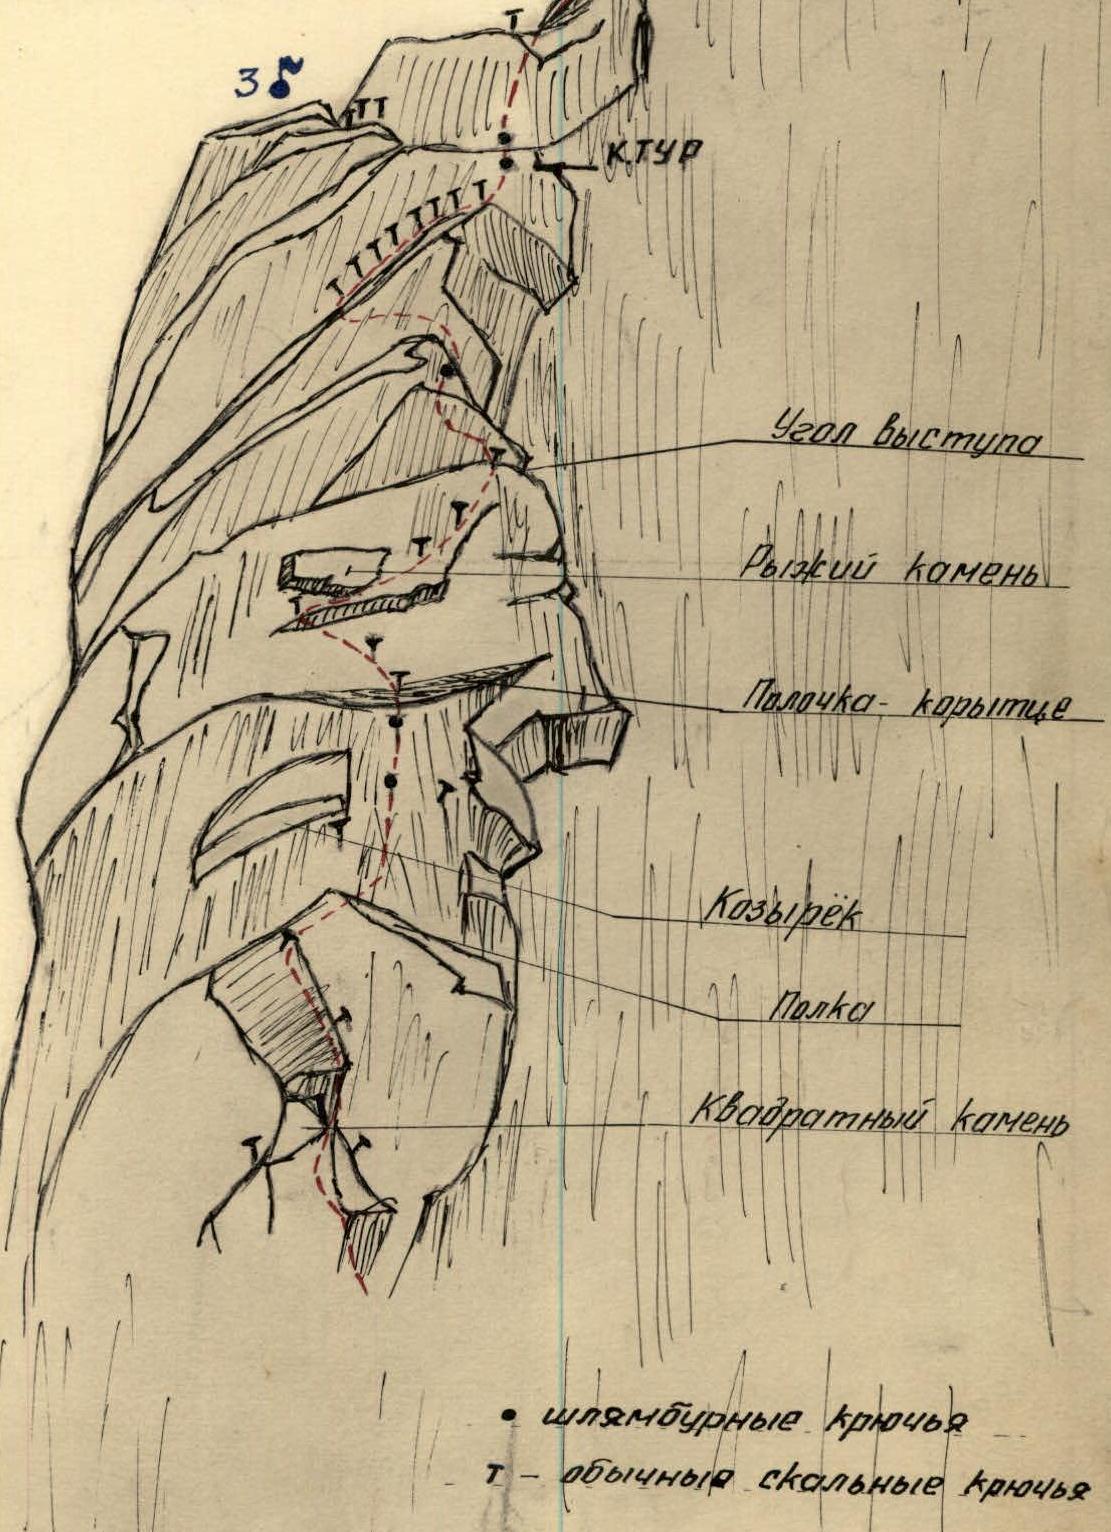 3
К.ТУР
Угол выступа
Рыжий камень
Полочка- корытце
Козырёк
Полка
Квадратный камень
• шлямбурные крючья
т - обычные скальные крючья